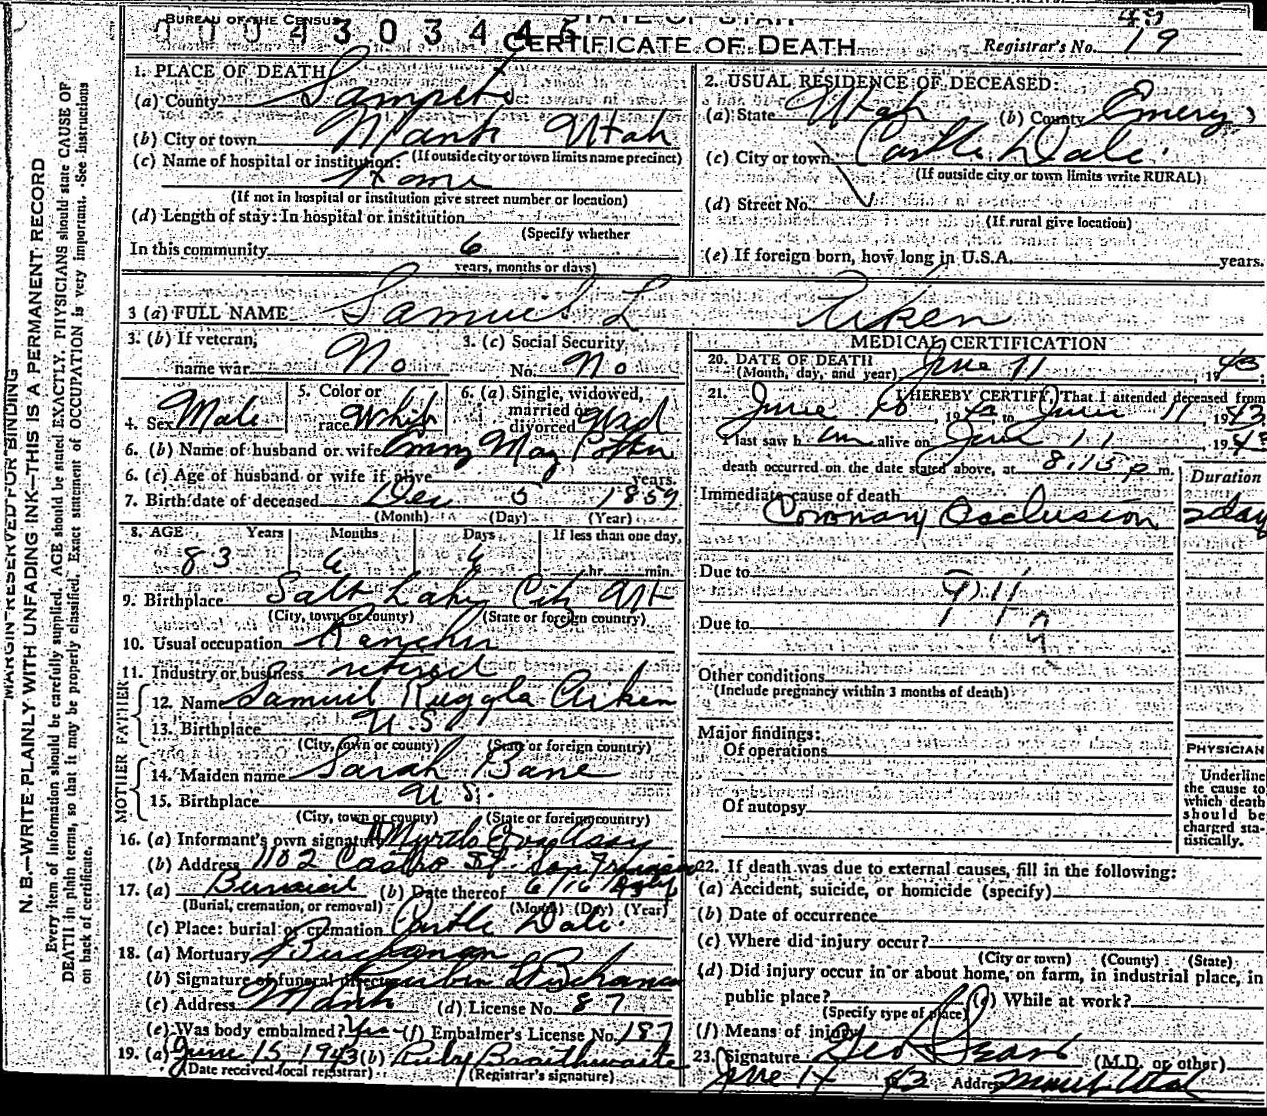 BUREAU OF THE CENSUS
STATE OF UTAH
49
CERTIFICATE OF DEATH
Registrar's No. 19
MARGIN RESERVED FOR BINDING
N. B.—WRITE PLAINLY WITH UNFADING INK—THIS IS A PERMANENT RECORD
Every item of information should be carefully supplied. AGE should be stated EXACTLY. PHYSICIANS should state CAUSE OF
DEATH in plain terms, so that it may be properly classified. Exact statement of OCCUPATION is very important. See Instructions
on back of certificate.
1. PLACE OF DEATH
(a) County Sanpete
(b) City or town Manti Utah
(If outside city or town limits name precinct)
(c) Name of hospital or institution:
Home
(If not in hospital or institution give street number or location)
(d) Length of stay: In hospital or institution
(Specify whether
In this community 6
years, months or days)
2. USUAL RESIDENCE OF DECEASED:
(a) State Utah (b) County Emery
(c) City or town Castle Dale
(If outside city or town limits write RURAL)
(d) Street No.
(If rural give location)
(e) If foreign born, how long in U.S.A. years.
3 (a) FULL NAME Samuel L Aiken
3. (b) If veteran,
name war No
3. (c) Social Security
No. No
4. Sex Male
5. Color or
race White
6. (a) Single, widowed,
married or
divorced Wid
6. (b) Name of husband or wife Emmy May Potter
6. (c) Age of husband or wife if alive years.
7. Birth date of deceased Dec 5 1859
(Month) (Day) (Year)
8. AGE Years Months Days If less than one day,
83 6 6 hr. min.
9. Birthplace Salt Lake City Ut
(City, town or county) (State or foreign country)
10. Usual occupation Rancher
11. Industry or business retired
FATHER
12. Name Samuel Ruggla Aiken
13. Birthplace U.S.
(City, town or county) (State or foreign country)
MOTHER
14. Maiden name Sarah Bane
15. Birthplace U.S.
(City, town or county) (State or foreign country)
16. (a) Informant's own signature Myrtle
(b) Address 1102 Castro St. San Francisco
17. (a) Burial (b) Date thereof 6/16
(Burial, cremation, or removal) (Month) (Day) (Year)
(c) Place: burial or cremation Castle Dale
18. (a) Mortuary Buchanan
(b) Signature of funeral director
(c) Address Manti (d) License No. 87
(e) Was body embalmed? Yes (f) Embalmer's License No. 187
19. (a) June 15 1943 (b) Ruby Braithwaite
(Date received local registrar) (Registrar's signature)
MEDICAL CERTIFICATION
20. DATE OF DEATH
(Month, day, and year) June 11, 1943
21. I HEREBY CERTIFY, That I attended deceased from
June 10, 1943, to June 11 1943
I last saw him alive on June 11 1943
death occurred on the date stated above, at 8:15 p m.
Duration
Immediate cause of death
Coronary Occlusion 2 day
Due to
Due to
Other conditions
(Include pregnancy within 3 months of death)
Major findings:
Of operations
Of autopsy
PHYSICIAN
Underline
the cause to
which death
should be
charged sta-
tistically.
22. If death was due to external causes, fill in the following:
(a) Accident, suicide, or homicide (specify)
(b) Date of occurrence
(c) Where did injury occur?
(City or town) (County) (State)
(d) Did injury occur in or about home, on farm, in industrial place, in
public place? (e) While at work?
(Specify type of place)
(f) Means of injury
23. Signature Geo (M.D. or other)
June 14 43 Address Manti Utah